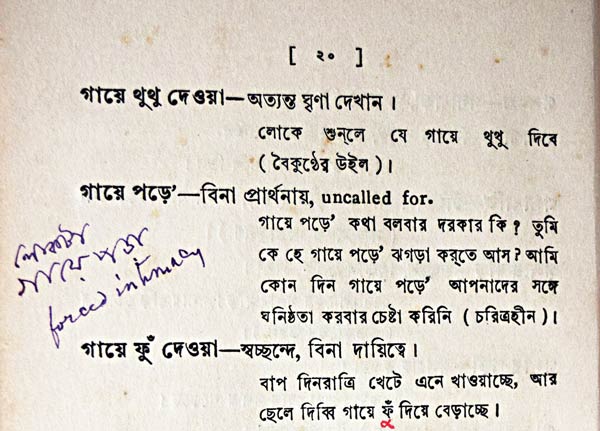 [ ২০ ]
গায়ে থুথু দেওয়া—অত্যন্ত ঘৃণা দেখান ।
লোকে শুন্‌লে যে গায়ে থুথু দিবে
( বৈকুণ্ঠের উইল ) ।
গায়ে পড়ে’—বিনা প্রার্থনায়, uncalled for.
গায়ে পড়ে’ কথা বলবার দরকার কি ? তুমি
কে হে গায়ে পড়ে’ ঝগড়া করতে আস ? আমি
কোন দিন গায়ে পড়ে’ আপনাদের সঙ্গে
ঘনিষ্ঠতা করবার চেষ্টা করিনি ( চরিত্রহীন ) ।
লোকটা
গায়ে পড়া
forced intimacy
গায়ে ফুঁ দেওয়া—স্বচ্ছন্দে, বিনা দায়িত্বে ।
বাপ দিনরাত্রি খেটে এনে খাওয়াচ্ছে, আর
ছেলে দিব্বি গায়ে ফুঁ দিয়ে বেড়াচ্ছে ।